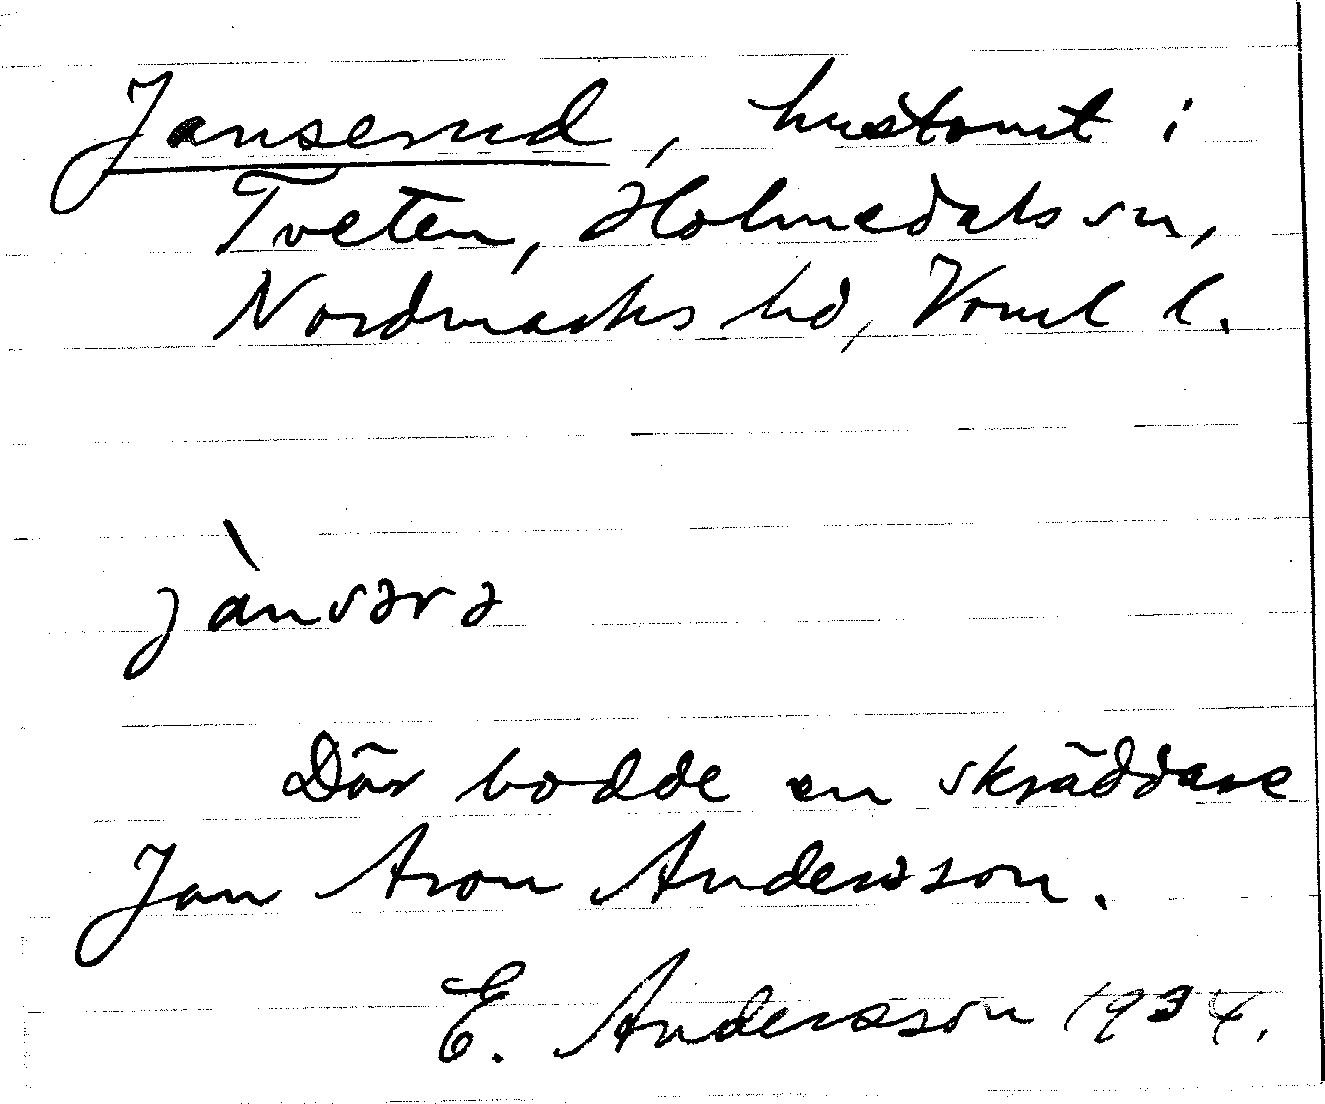 Janserud, hustomt i
Tveten, Holmedals sn,
Nordmarks hd, Värml l.
jànsərə
Där bodde en skräddare
Jan Aron Andersson.
E. Andersson 1934.